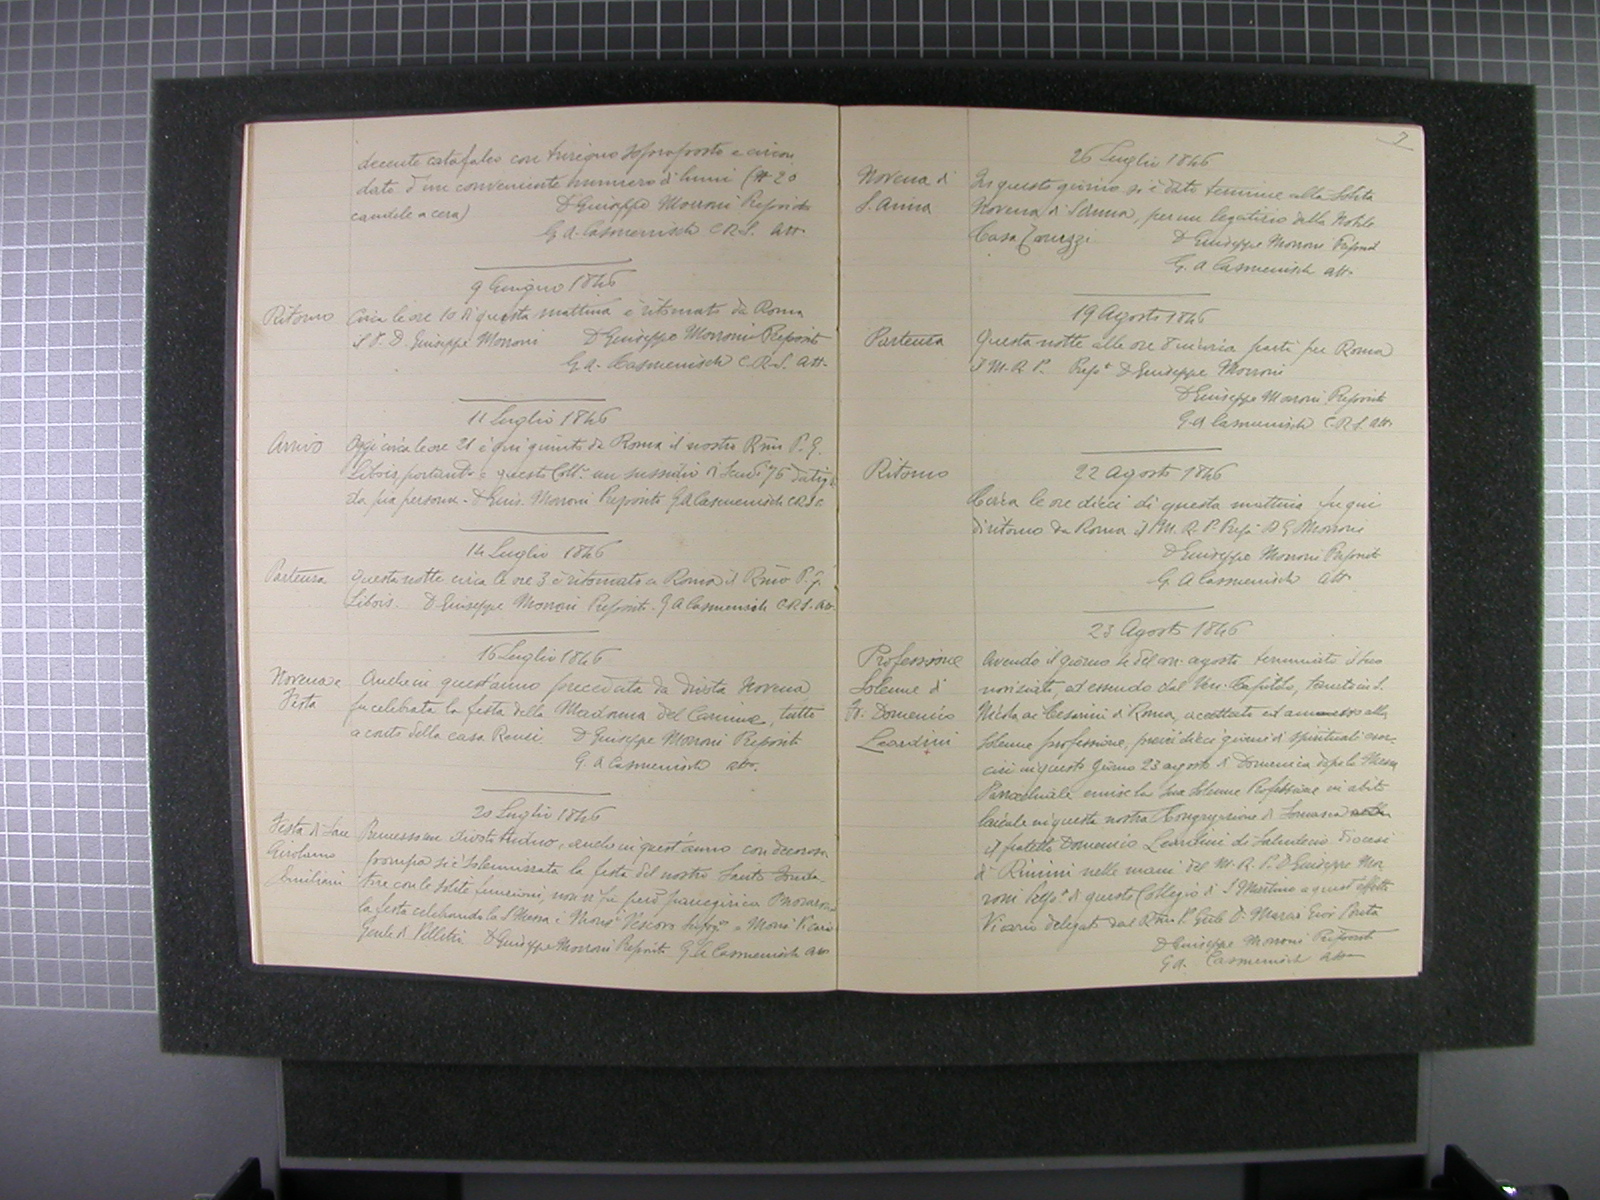 decente catafalco con triregno sopraposto e circon
dato d'un conveniente numero di lumi (N 20
candele a cera) D Giuseppe Morroni Preposito
G. A. Casmenisch C.R.S. Att.
9 Giugno 1846
Ritorno Circa le ore 10 di questa mattina è ritornato da Roma
il P. D. Giuseppe Morroni D Giuseppe Morroni Preposito
G. A. Casmenisch C.R.S. Att.
11 Luglio 1846
Arrivo Oggi circa le ore 21 è qui giunto da Roma il nostro Rmo P. G.
Libois, portando a questo Coll. un sussidio di Scudi 76
da pia persona. D Gius. Morroni Preposito G A Casmenisch C.R.S.
14 Luglio 1846
Partenza Questa notte circa le ore 3 è ritornato a Roma il Rmo P. G.
Libois. D Giuseppe Morroni Preposito. G A Casmenisch C.R.S. att.
16 Luglio 1846
Novena e Anche in quest'anno preceduta da divota Novena
Festa fu celebrata la festa della Madonna del Carmine, tutto
a conto della casa Renzi. D Giuseppe Morroni Preposito
G. A Casmenisch att.
20 Luglio 1846
Festa di San Premesso un divoto triduo, anche in quest'anno con decorosa
Girolamo pompa si è solennizzata la festa del nostro Santo Fonda-
Emiliani tore con le solite funzioni, non vi fu però panegirico. Onorarono
la festa celebrando la S Messa i Monsi Vescovo Suffro e Monsi Vicario
Genle di Velletri. D Giuseppe Morroni Preposito. G A Casmenisch att
7
26 Luglio 1846
Novena di In questo giorno si è dato termine alla solita
S. Anna Novena di S Anna, per un legatizio della Nobile
Casa D Giuseppe Morroni Preposi
G. A Casmenisch att.
19 Agosto 1846
Partenza Questa notte alle ore partì per Roma
il M. R. P. Prepo D Giuseppe Morroni
D Giuseppe Morroni Preposito
G A Casmenisch C.R.S. att.
Ritorno 22 Agosto 1846
Circa le ore dieci di questa mattina fu qui
di ritorno da Roma il M. R. P. Prepo D G Morroni
D Giuseppe Morroni Preposito
G. A Casmenisch att.
23 Agosto 1846
Professione Avendo il giorno del agosto terminato il suo
Solenne di noviziato, ed essendo dal Ven. Capitolo, tenuto in S.
Fr. Domenico Nicola ai Cesarini di Roma, accettato ed ammesso alla
Leardini solenne professione, previi dieci giorni di spirituali eser-
cizi in questo giorno 23 agosto di Domenica dopo la Messa
Parrochiale emise la sua solenne Professione in abito
laicale in questa nostra Congregazione di Somasca
il fratello Domenico Leardini di Saludecio diocesi
di Rimini nelle mani del M. R. P. D Giuseppe Mor
roni Prepo di questo Collegio di S Martino a quest'effetto
Vicario delegato dal Rmo P. Genle D. Marco Gio Ponta
D Giuseppe Morroni Preposito
G A. Casmenisch att